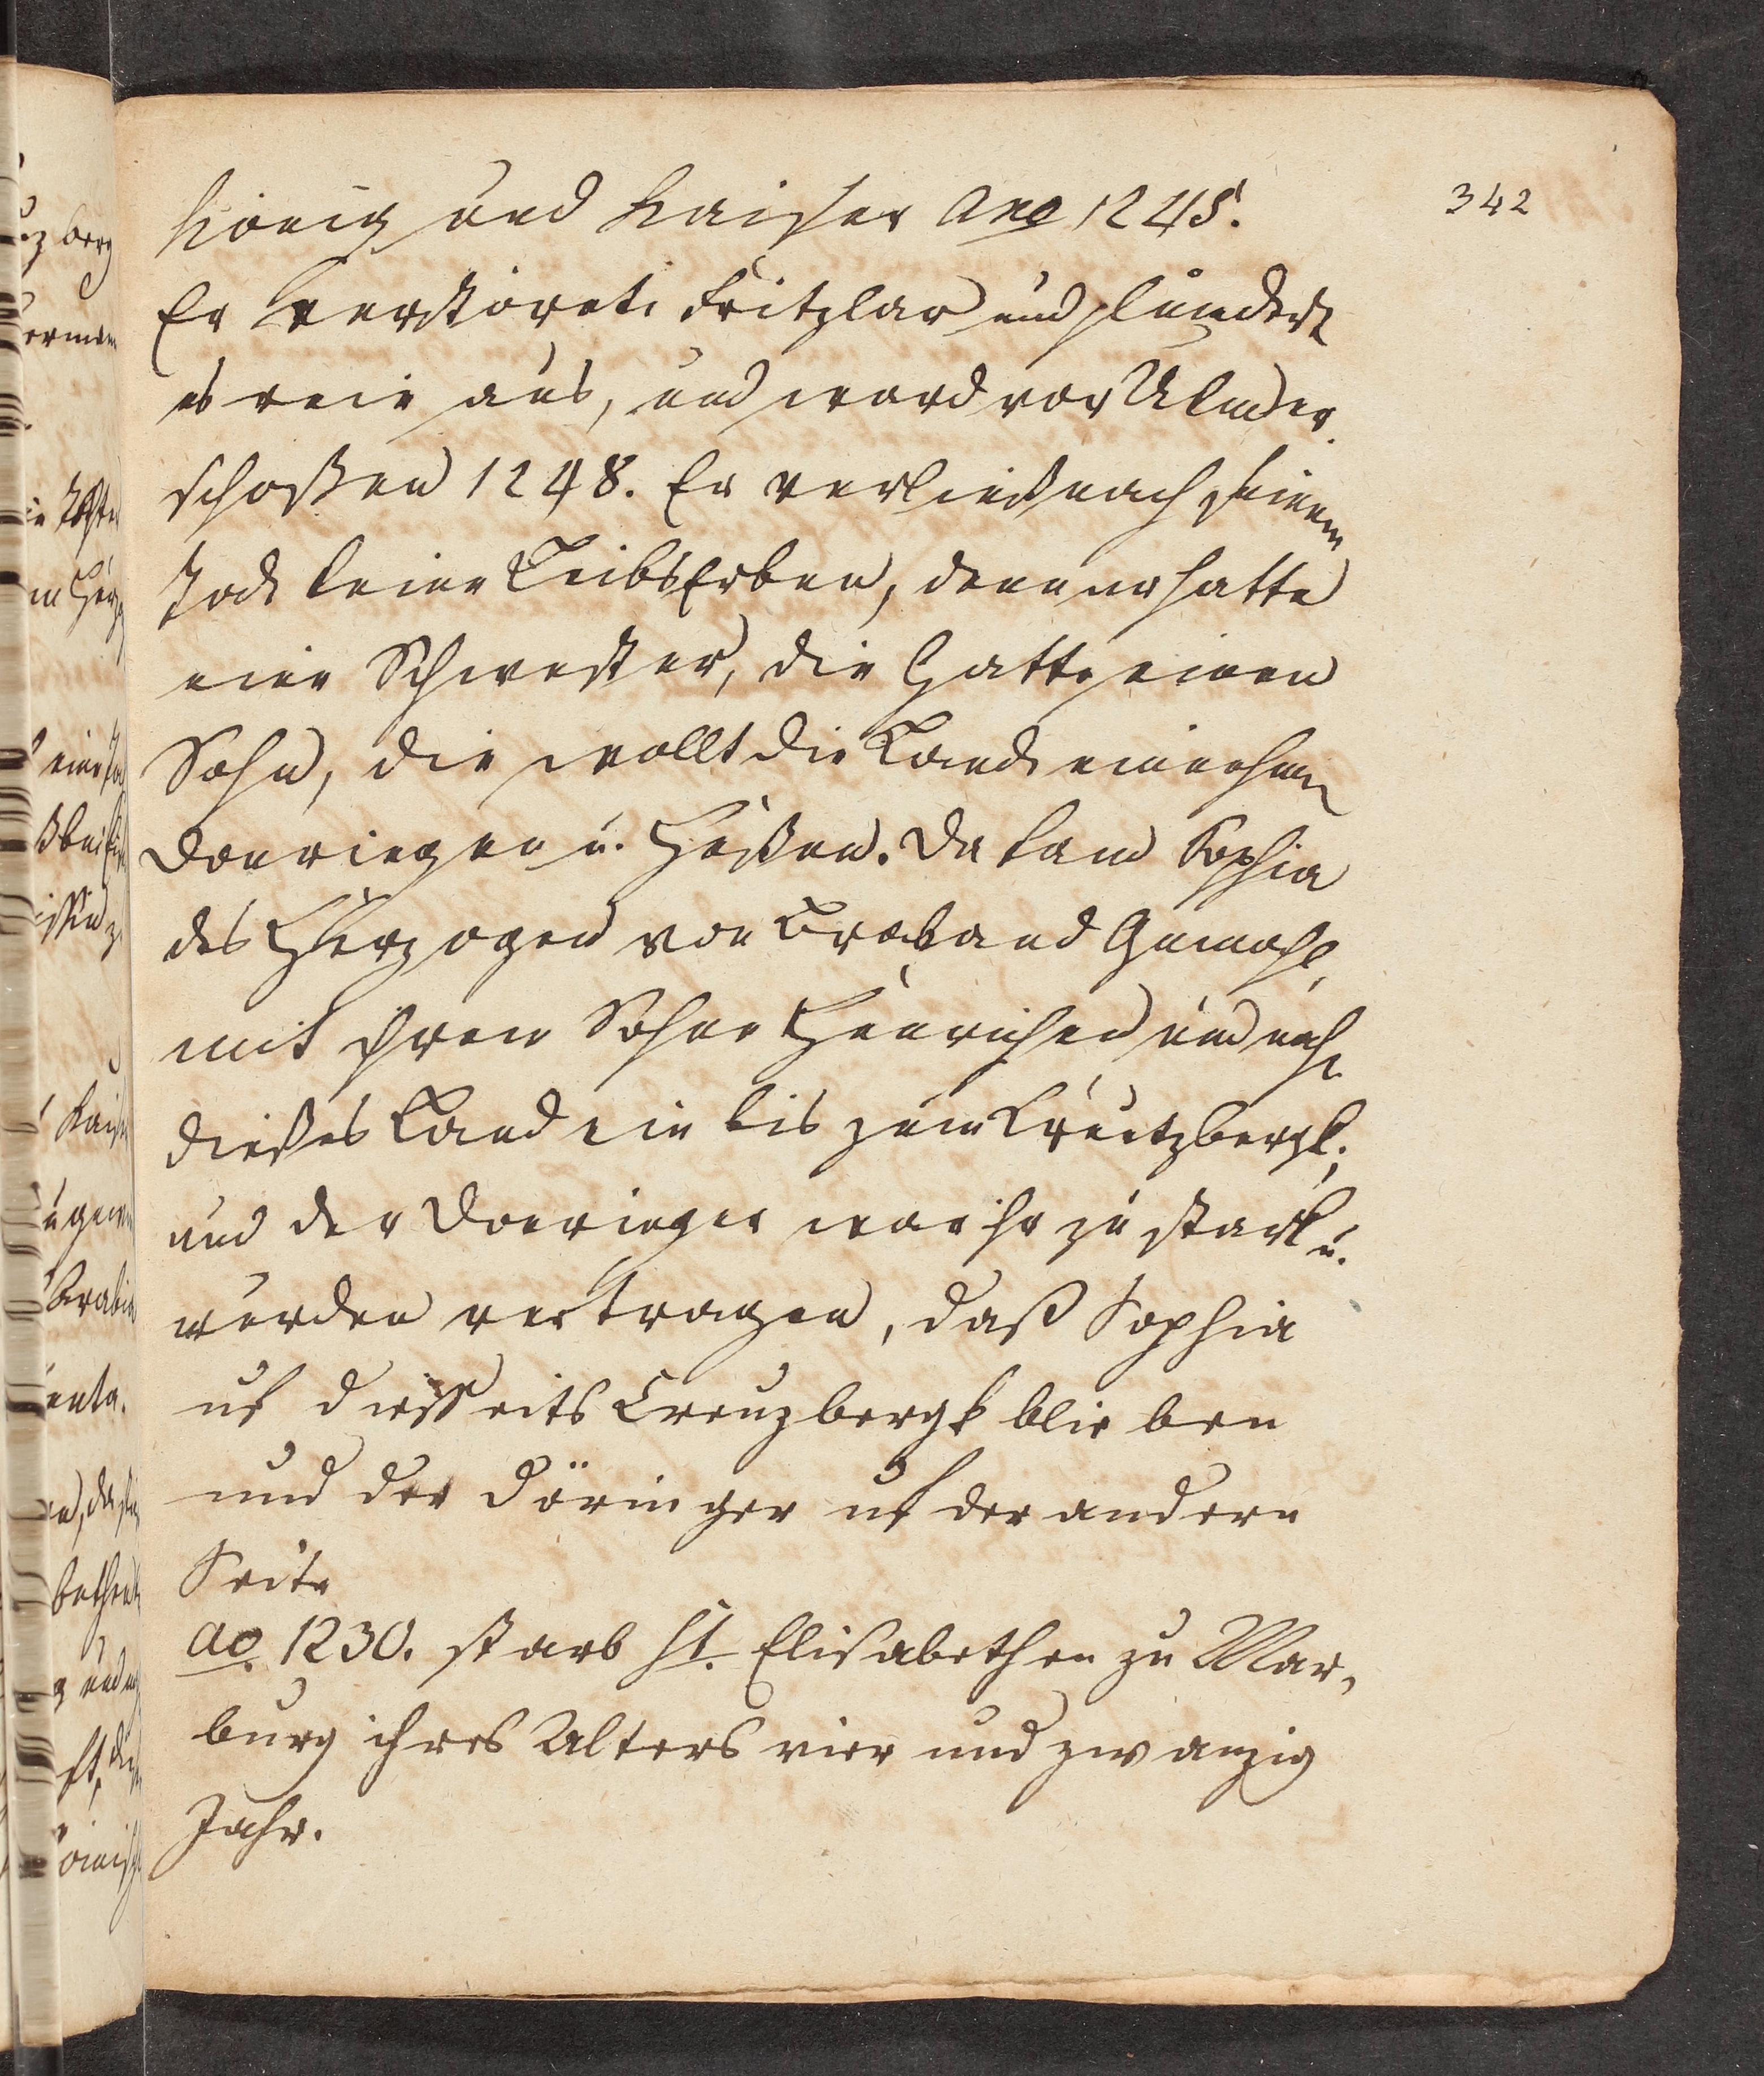 342
König und Kaiser Ano 1245.
Er verstöret Fritzlar und plündert
es rein aus, und ward vor Ulm er
schoßen 1248. Er verließ nach seinem
Tode keine LeibsErben, denn er hatte
eine Schwester, die Hatte einen
Sohn, die wollt die Lande einnehmen
Doeringen u. Heßen. Da kam Sophia
des Herzogen von Braband Gemahl,
mit ihren Sohne Henrichen und nahm
dießes Land ein bis zum Creutzbergk,
und der Doeringer war ihr zu stark u.
wurden vertragen, daß Sophia
uf disseits Creuzbergk blieben
und der Döringer uf der andern
Seite
ao 1230. starb St. Elisabethen zu Mar,
burg ihres Alters vier und zwanzig
Jahr.